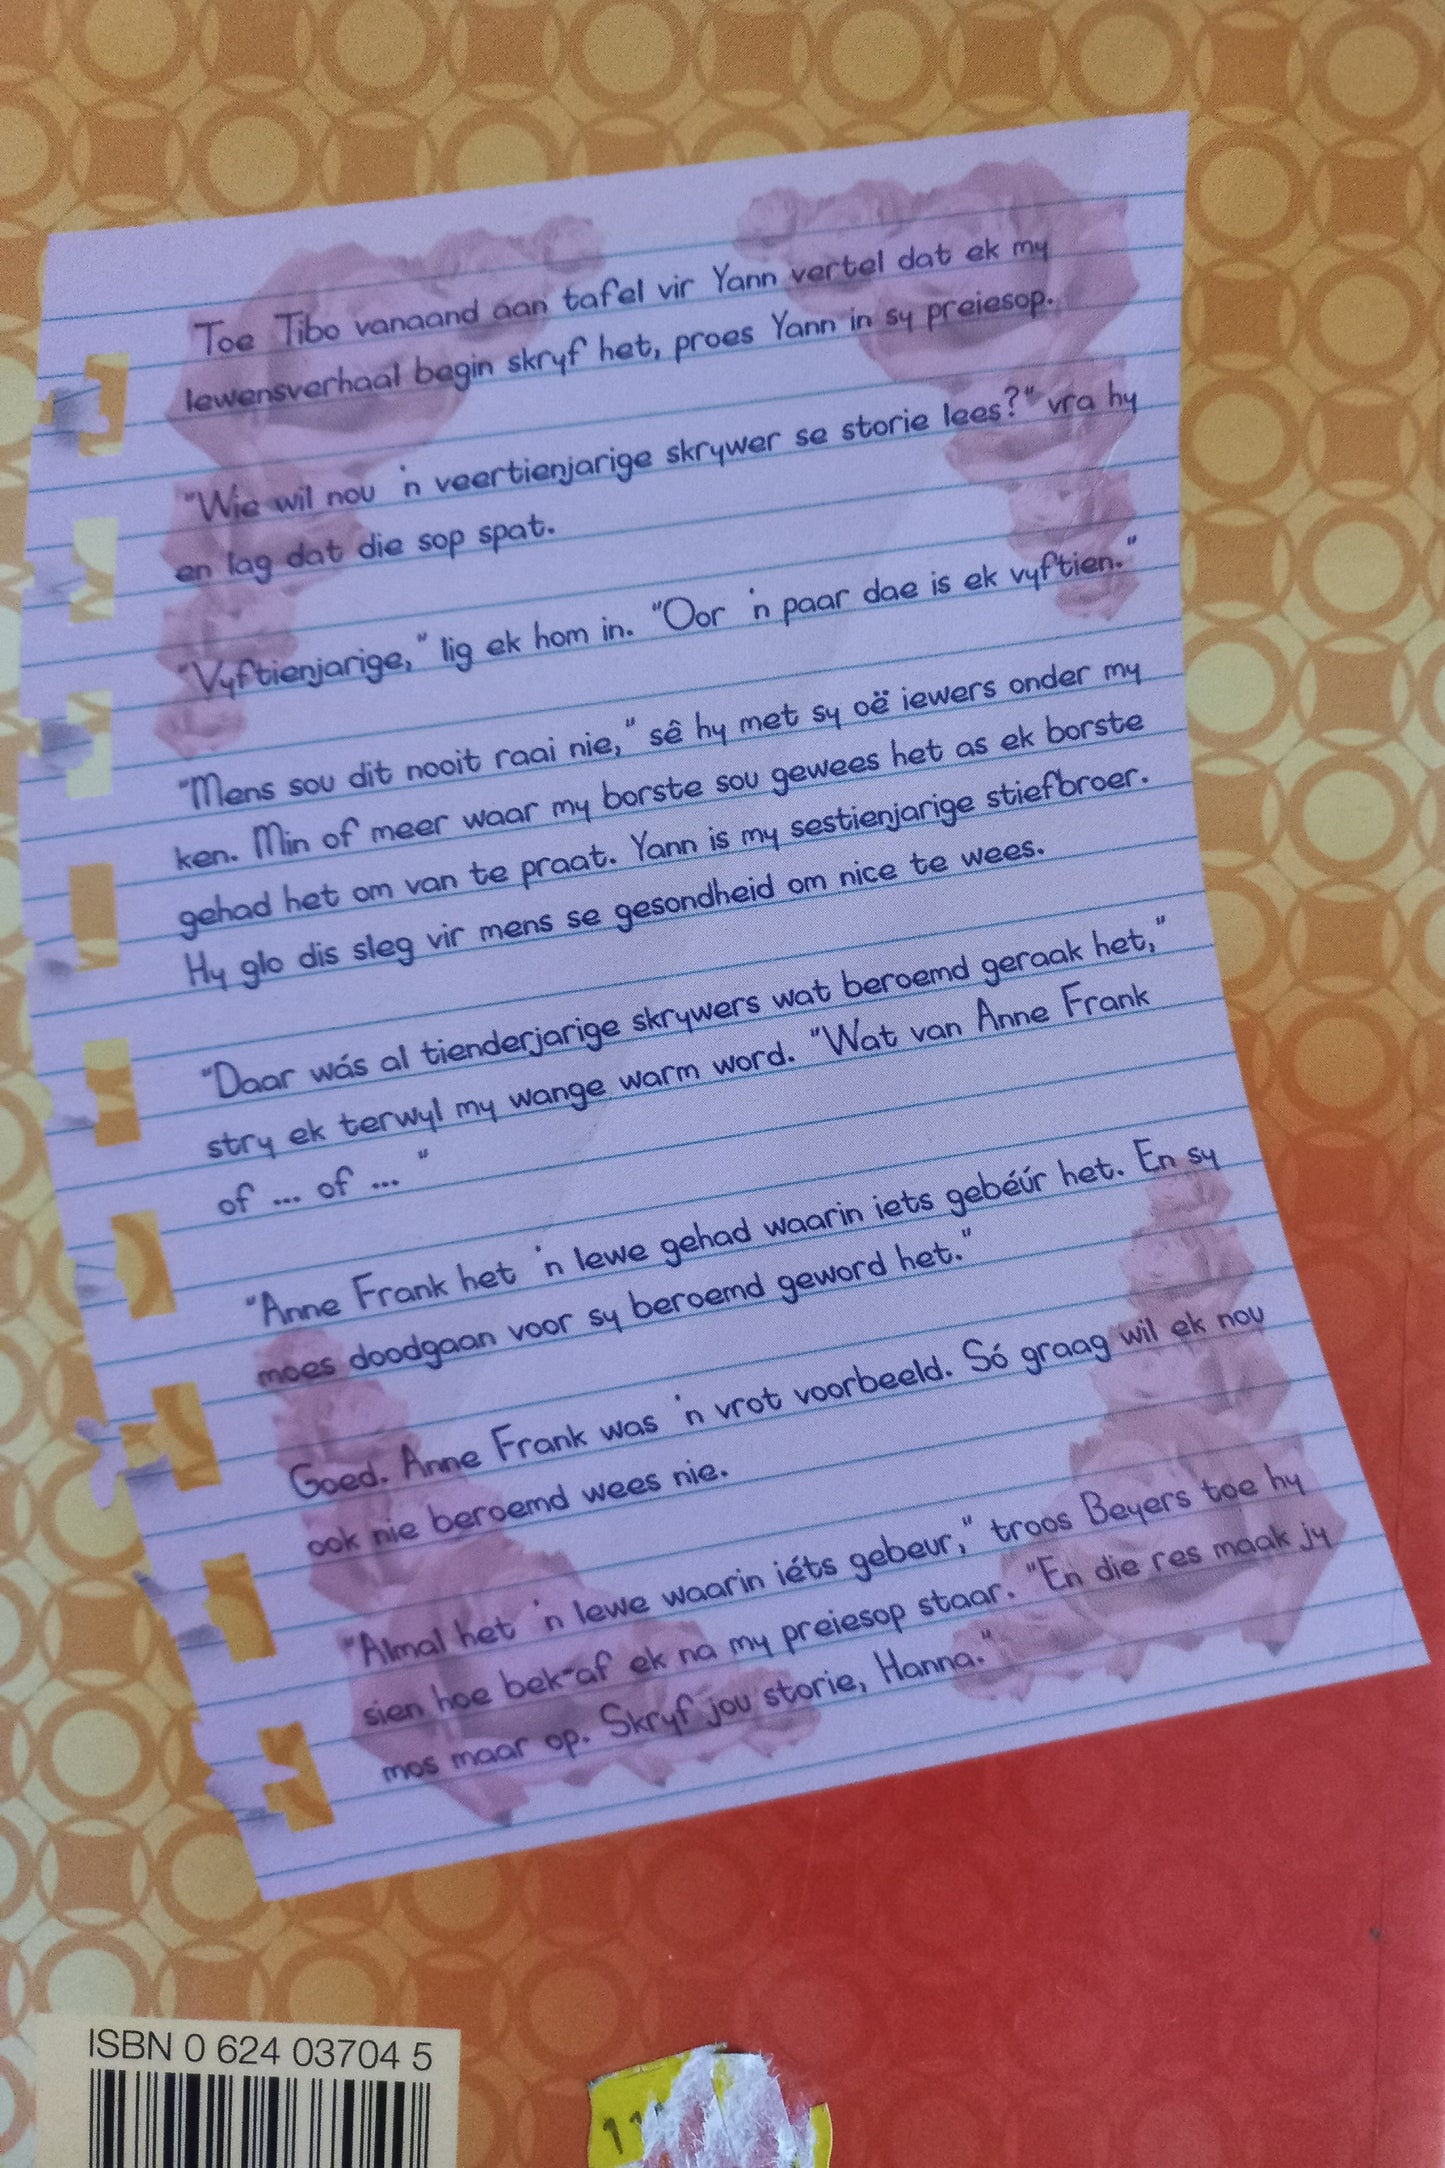 Toe Tibo vanaand aan tafel vir Yann vertel dat ek my
lewensverhaal begin skryf het, proes Yann in sy preiesop.
"Wie wil nou 'n veertienjarige skrywer se storie lees?" vra hy
en lag dat die sop spat.
"Vyftienjarige," lig ek hom in. "Oor 'n paar dae is ek vyftien."
"Mens sou dit nooit raai nie," sê hy met sy oë iewers onder my
ken. Min of meer waar my borste sou gewees het as ek borste
gehad het om van te praat. Yann is my sestienjarige stiefbroer.
Hy glo dis sleg vir mens se gesondheid om nice te wees.
"Daar wás al tienderjarige skrywers wat beroemd geraak het,"
stry ek terwyl my wange warm word. "Wat van Anne Frank
of ... of ... "
"Anne Frank het 'n lewe gehad waarin iets gebéúr het. En sy
moes doodgaan voor sy beroemd geword het."
Goed. Anne Frank was 'n vrot voorbeeld. Só graag wil ek nou
ook nie beroemd wees nie.
"Almal het 'n lewe waarin iéts gebeur," troos Beyers toe hy
sien hoe bek-af ek na my preiesop staar. "En die res maak jy
mos maar op. Skryf jou storie, Hanna."
ISBN 0 624 03704 5